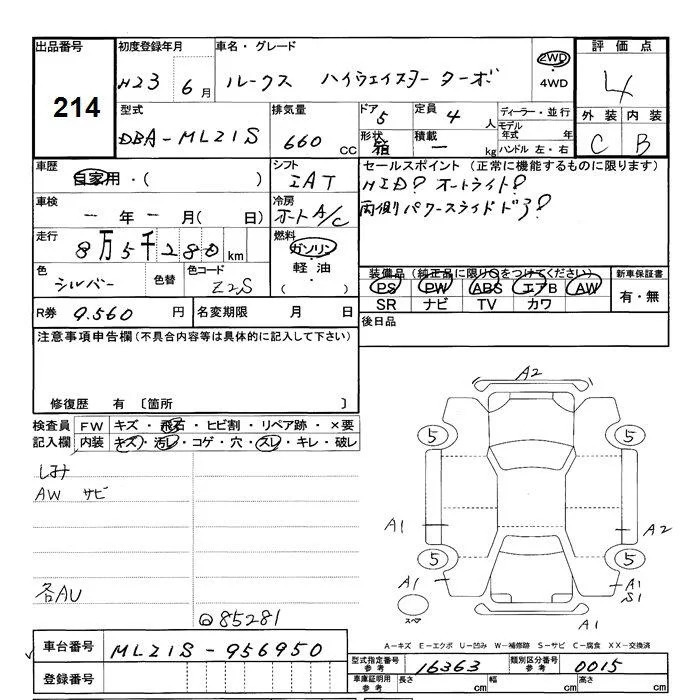 出品番号 初度登録年月 車名・グレード 評価点
214 H23 6月 ルークス ハイウェイスター ターボ 2WD・4WD 4
型式 排気量 ドア 5 定員 4人 ディーラー・並行 外装 内装
DBA-ML21S 660 CC 形状 箱 積載 ー kg モデル年式 年 ハンドル 左・右 C B
車歴 シフト セールスポイント (正常に機能するものに限ります)
自家用・( ) IAT HID? オートライト?
車検 冷房 両側パワースライドドア?
ー年ー月( 日) オートA/C
走行 8万5千280km 燃料 ガソリン・軽油・( )
装備品 (純正品に限り○をつけてください) 新車保証書
色 シルバー 色替 色コード Z2S PS PW ABS エアB AW 有・無
SR ナビ TV カワ
R券 9.560 円 名変期限 月 日 後日品
注意事項申告欄 (不具合内容等は具体的に記入して下さい)
修復歴 有 〔箇所 〕
検査員 FW キズ・飛石・ヒビ割・リペア跡・×要
記入欄 内装 キズ・汚レ・コゲ・穴・スレ・キレ・破レ
シミ
AW サビ
各AU
85281
A2
5 5
A1 A2
5 5
A1 A1
S1
スペア A1
A-キズ E-エクボ U-凹み W-補修跡 S-サビ C-腐食 XX-交換済
車台番号 ML21S-956950
型式指定番号 参考 16363 類別区分番号 参考 0015
登録番号 車庫証明用 参考 長さ cm 幅 cm 高さ cm